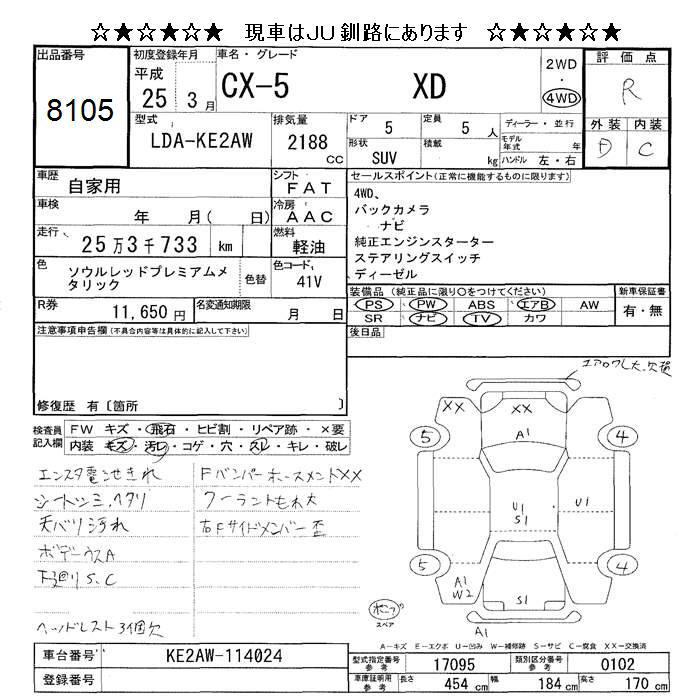 ☆★☆★☆★ 現車はJU釧路にあります ☆★☆★☆★
出品番号
8105
初度登録年月
平成
25 3月
車名・グレード
CX-5 XD
2WD
・
4WD
評価点
R
外装 内装
D C
型式
LDA-KE2AW
排気量
2188
CC
ドア
5
定員
5 人
ディーラー・並行
モデル年式 年
形状
SUV
積載
kg
ハンドル 左・右
車歴
自家用
シフト
FAT
車検
年 月( 日)
冷房
AAC
走行
25万3千733 km
燃料
軽油
色
ソウルレッドプレミアムメタリック
色替
色コード
41V
セールスポイント(正常に機能するものに限ります)
4WD、
バックカメラ
ナビ
純正エンジンスターター
ステアリングスイッチ
ディーゼル
R券
11,650 円
名変通知期限
月 日
装備品(純正品に限り○をつけてください)
PS PW ABS エアB AW
SR ナビ TV カワ
新車保証書
有・無
後日品
注意事項申告欄(不具合内容等は具体的に記入して下さい)
修復歴 有〔箇所 〕
検査員記入欄
FW キズ・飛石・ヒビ割・リペア跡・×要
内装 キズ・汚レ・コゲ・穴・スレ・キレ・破レ
エンスタ電池きれ
シートシミ、ヘタリ
天バリ汚れ
ボデーウスA
下廻りS、C
ヘッドレスト3個欠
FバンパーホースメントXX
クーラントもれ大
右Fサイドメンバー歪
エアロワレ大、欠損
XX
XX
A1
5
4
U1
S1
U1
5
4
A1
W2
S1
A1
スペア
A-キズ E-エクボ U-凹み W-補修跡 S-サビ C-腐食 XX-交換済
車台番号
KE2AW-114024
登録番号
型式指定番号
参考
17095
類別区分番号
参考
0102
車庫証明用
参考
長さ 454 cm
幅 184 cm
高さ 170 cm